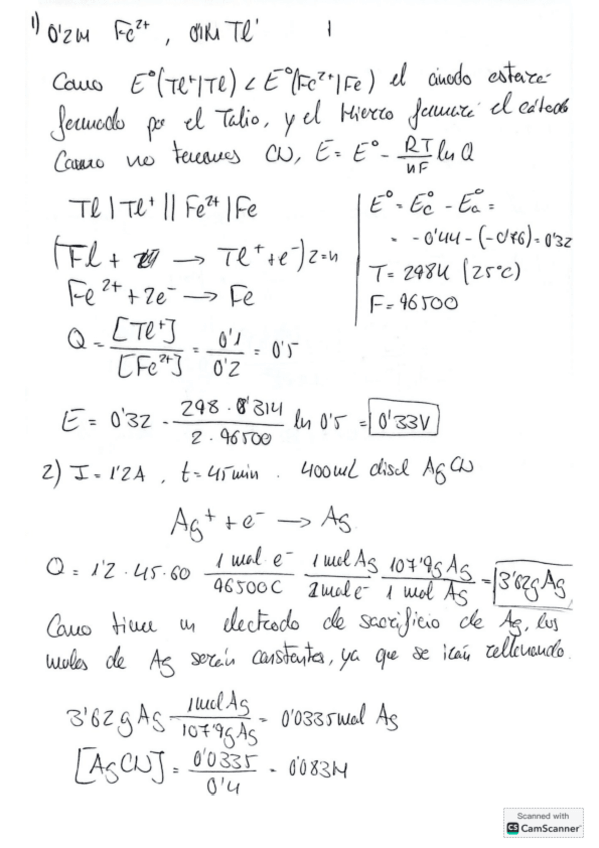 1) 0'2M Fe²⁺, 0'1M Tl⁺
Como E°(Tl⁺|Tl) < E°(Fe²⁺|Fe) el ánodo estará
formado por el Talio, y el Hierro formará el cátodo
Como no tenemos CN, E = E° - RT/nF ln Q
Tl | Tl⁺ || Fe²⁺ | Fe
(Tl + → Tl⁺ + e⁻) 2=n
Fe²⁺ + 2e⁻ → Fe
Q = [Tl⁺]/[Fe²⁺] = 0'1/0'2 = 0'5
E° = E°c - E°a =
= -0'44 - (-0'76) = 0'32
T = 298K (25°C)
F = 96500
E = 0'32 - 298 · 8'314/2 · 96500 ln 0'5 = 0'33V
2) I = 1'2A, t = 45min. 400mL disol AgCN
Ag⁺ + e⁻ → Ag
Q = 1'2 · 45 · 60 1 mol e⁻/96500C 1 mol Ag/1 mol e⁻ 107'9g Ag/1 mol Ag = 3'62g Ag
Como tiene un electrodo de sacrificio de Ag, los
moles de Ag serán constantes, ya que se irán rellenando.
3'62g Ag 1 mol Ag/107'9g Ag = 0'0335 mol Ag
[AgCN] = 0'0335/0'4 = 0'083M
Scanned with
CS CamScanner